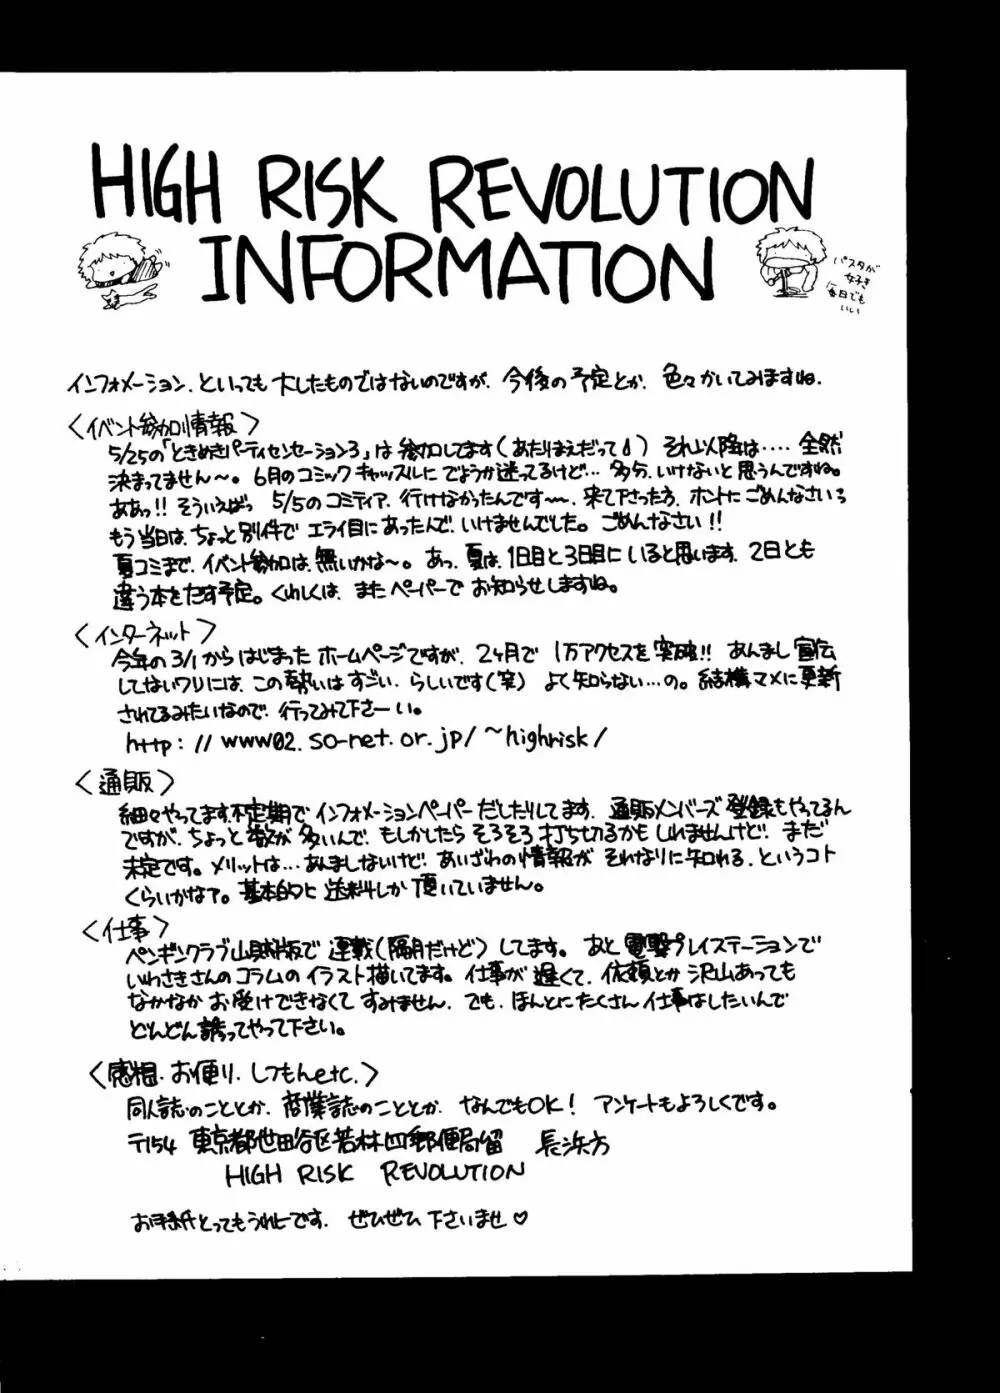 HIGH RISK REVOLUTION
INFORMATION
パスタが
好き
毎日でも
いい
インフォメーション、といっても大したものではないのですが、今後の予定とか、色々かいてみますね。
〈イベント参加情報〉
5/25の「ときめきパーティセンセーション3」は参加してます(あたりまえだって) それ以降は‥‥全然
決まってません〜。6月のコミックキャッスルにでようか迷ってるけど…多分、いけないと思うんですね。
ああっ!! そういえばっ 5/5のコミティア、行けなかったんです〜。来て下さった方、ホントにごめんなさい。
もう当日は、ちょっと別件でエライ目にあったんで、いけませんでした。ごめんなさい!!
夏コミまで、イベント参加は、無いかな〜。あっ、夏は、1日目と3日目にいると思います、2日とも
違う本をだす予定。くわしくは、またペーパーでお知らせしますね。
〈インターネット〉
今年の3/1からはじまったホームページですが、2ヶ月で1万アクセスを突破!! あんまし宣伝
してないワリには、この勢いはすごい、らしいです(笑) よく知らない…の。結構マメに更新
されてるみたいなので、行ってみて下さーい。
http://www02.so-net.or.jp/~highrisk/
〈通販〉
細々やってます、不定期でインフォメーションペーパーだしたりしてます、通販メンバーズ登録もやってるん
ですが、ちょっと数が多いんで、もしかしたらそろそろ打ち切るかもしれませんけど、まだ
未定です。メリットは…あんましないけど、あいざわの情報がそれなりに知れる、というコト
くらいかなア。基本的に送料しか頂いていません。
〈仕事〉
ペンギンクラブ山賊版で連載(隔月だけど)してます。あと電撃プレイステーションで
いわさきさんのコラムのイラスト描いてます。仕事が遅くて、依頼とか沢山あっても
なかなかお受けできなくてすみません、でも、ほんとにたくさん仕事はしたいんで
どんどん誘ってやって下さい。
〈感想・お便り・しつもんetc.〉
同人誌のこととか、商業誌のこととか、なんでもOK! アンケートもよろしくです。
〒154 東京都世田谷区若林四郵便局留 長浜方
HIGH RISK REVOLUTION
お手紙とってもうれしーです、ぜひぜひ下さいませ♡